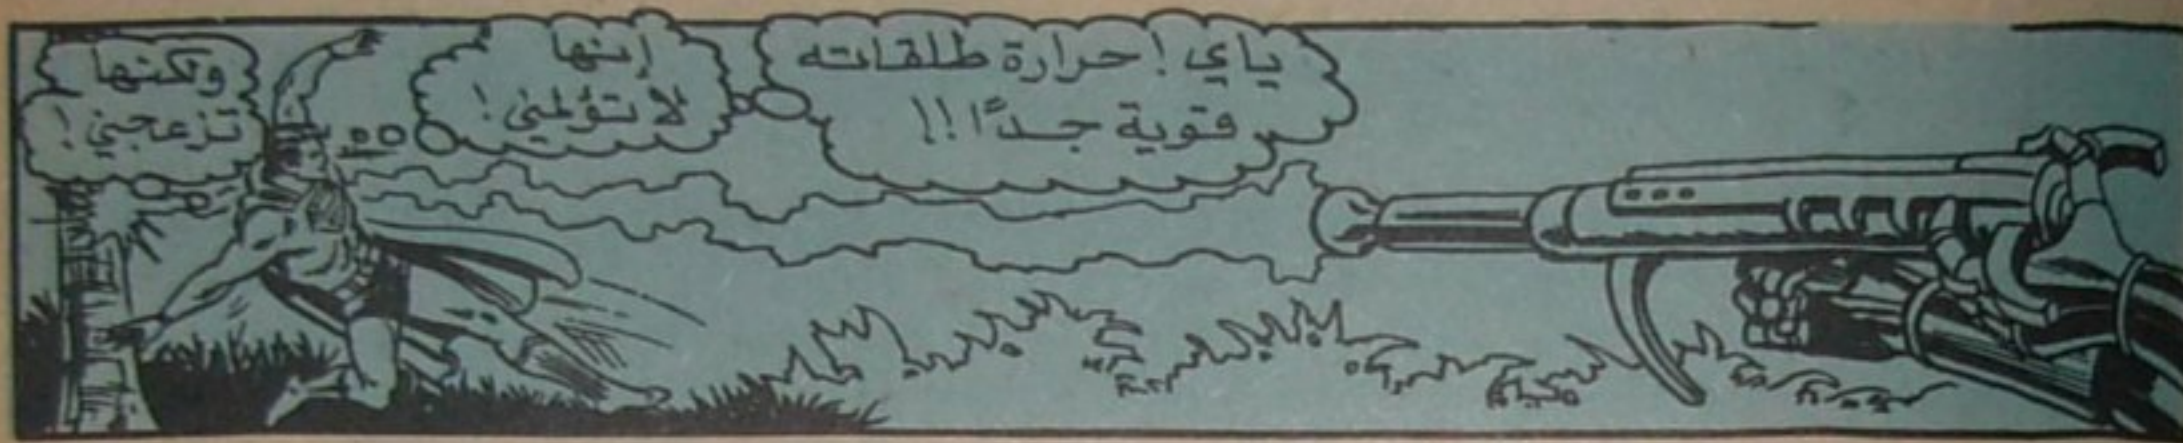 ياي! حرارة طلقاته
قوية جدًا!!
إنها
لا تؤلمني!
ولكنها
تزعجني!